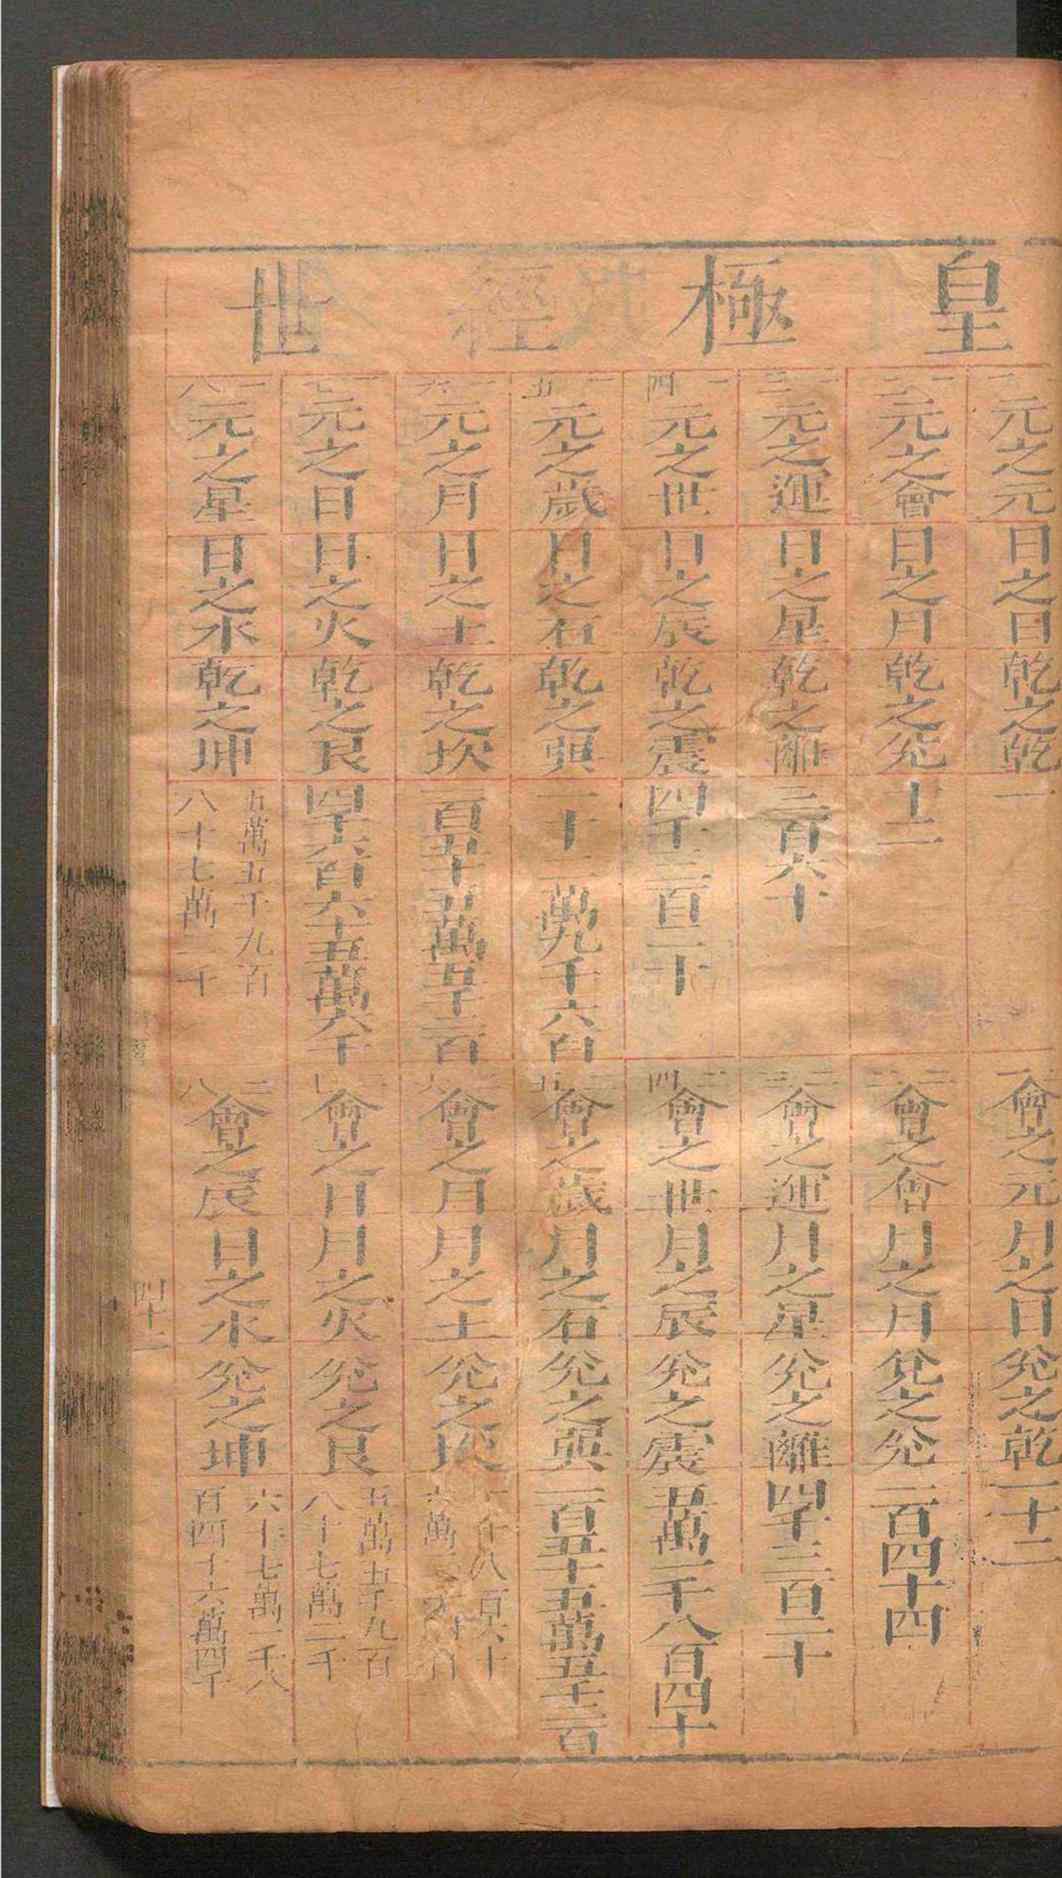 皇極經世
一一元之元 日之日 乾之乾 一
二一會之元 月之日 兌之乾 一十二
一二元之會 日之月 乾之兌 十二
二二會之會 月之月 兌之兌 一百四十四
一三元之運 日之星 乾之離 三百六十
二三會之運 月之星 兌之離 四千三百二十
一四元之世 日之辰 乾之震 四千三百二十
二四會之世 月之辰 兌之震 五萬一千八百四十
一五元之歲 日之石 乾之巽 一十二萬九千六百
二五會之歲 月之石 兌之巽 一百五十五萬五千二百
一六元之月 日之土 乾之坎 一百五十五萬五千二百
二六會之月 月之土 兌之坎 一千八百六十
六萬二千四百
一七元之日 日之火 乾之艮 四千六百六十五萬六千
二七會之日 月之火 兌之艮 五萬五千九百
八十七萬二千
一八元之星 日之水 乾之坤 五萬五千九百
八十七萬二千
二八會之辰 日之水 兌之坤 六十七萬一千八
百四十六萬四千
四十二